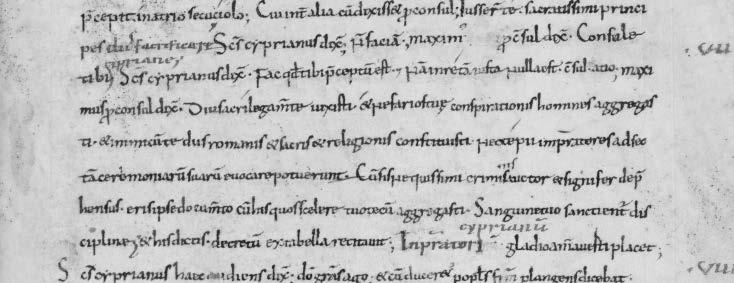 p̄cepit in atrio seciciolo; Cui int̄ alia cū dixisset proconsul; Iusserunt te sacratissimi princi
pes diis sacrificare Sc̄s cyprianus dix̄; Nō faciā. maximꝰ p̄consul dix̄. Consule
cyprianꝰ
tibi; Sc̄s cyprianus dix̄. Fac qd̄ tibi p̄ceptū est. In re tā iusta nulla est c̄sultatio; maxi
mus p̄consul dix̄. Diu sacrilega m̄te vixisti & nefarios tuę conspirationis homines aggregas
ti. & inimicū te diis romanis & sacris religionis constituisti. nec te pii imp̄ratores ad sec
tā ceremoniarū suarū evocare potuerunt. Cū sis nequissimi criminis auctor & signifer dep̄
hensus. eris ipse documto cū his quos scelere tuo tecū aggregasti. Sanguine tuo sancient̄ dis
ciplinę; & his dictis. decretū ex tabella recitavit; cyprianū gladio animadverti placet;
Sc̄s cyprianus haec audiens dix̄; dō gr̄as ago. & cū duceret̄ popl̄s plangens dicebat.
.VII.
.VIII